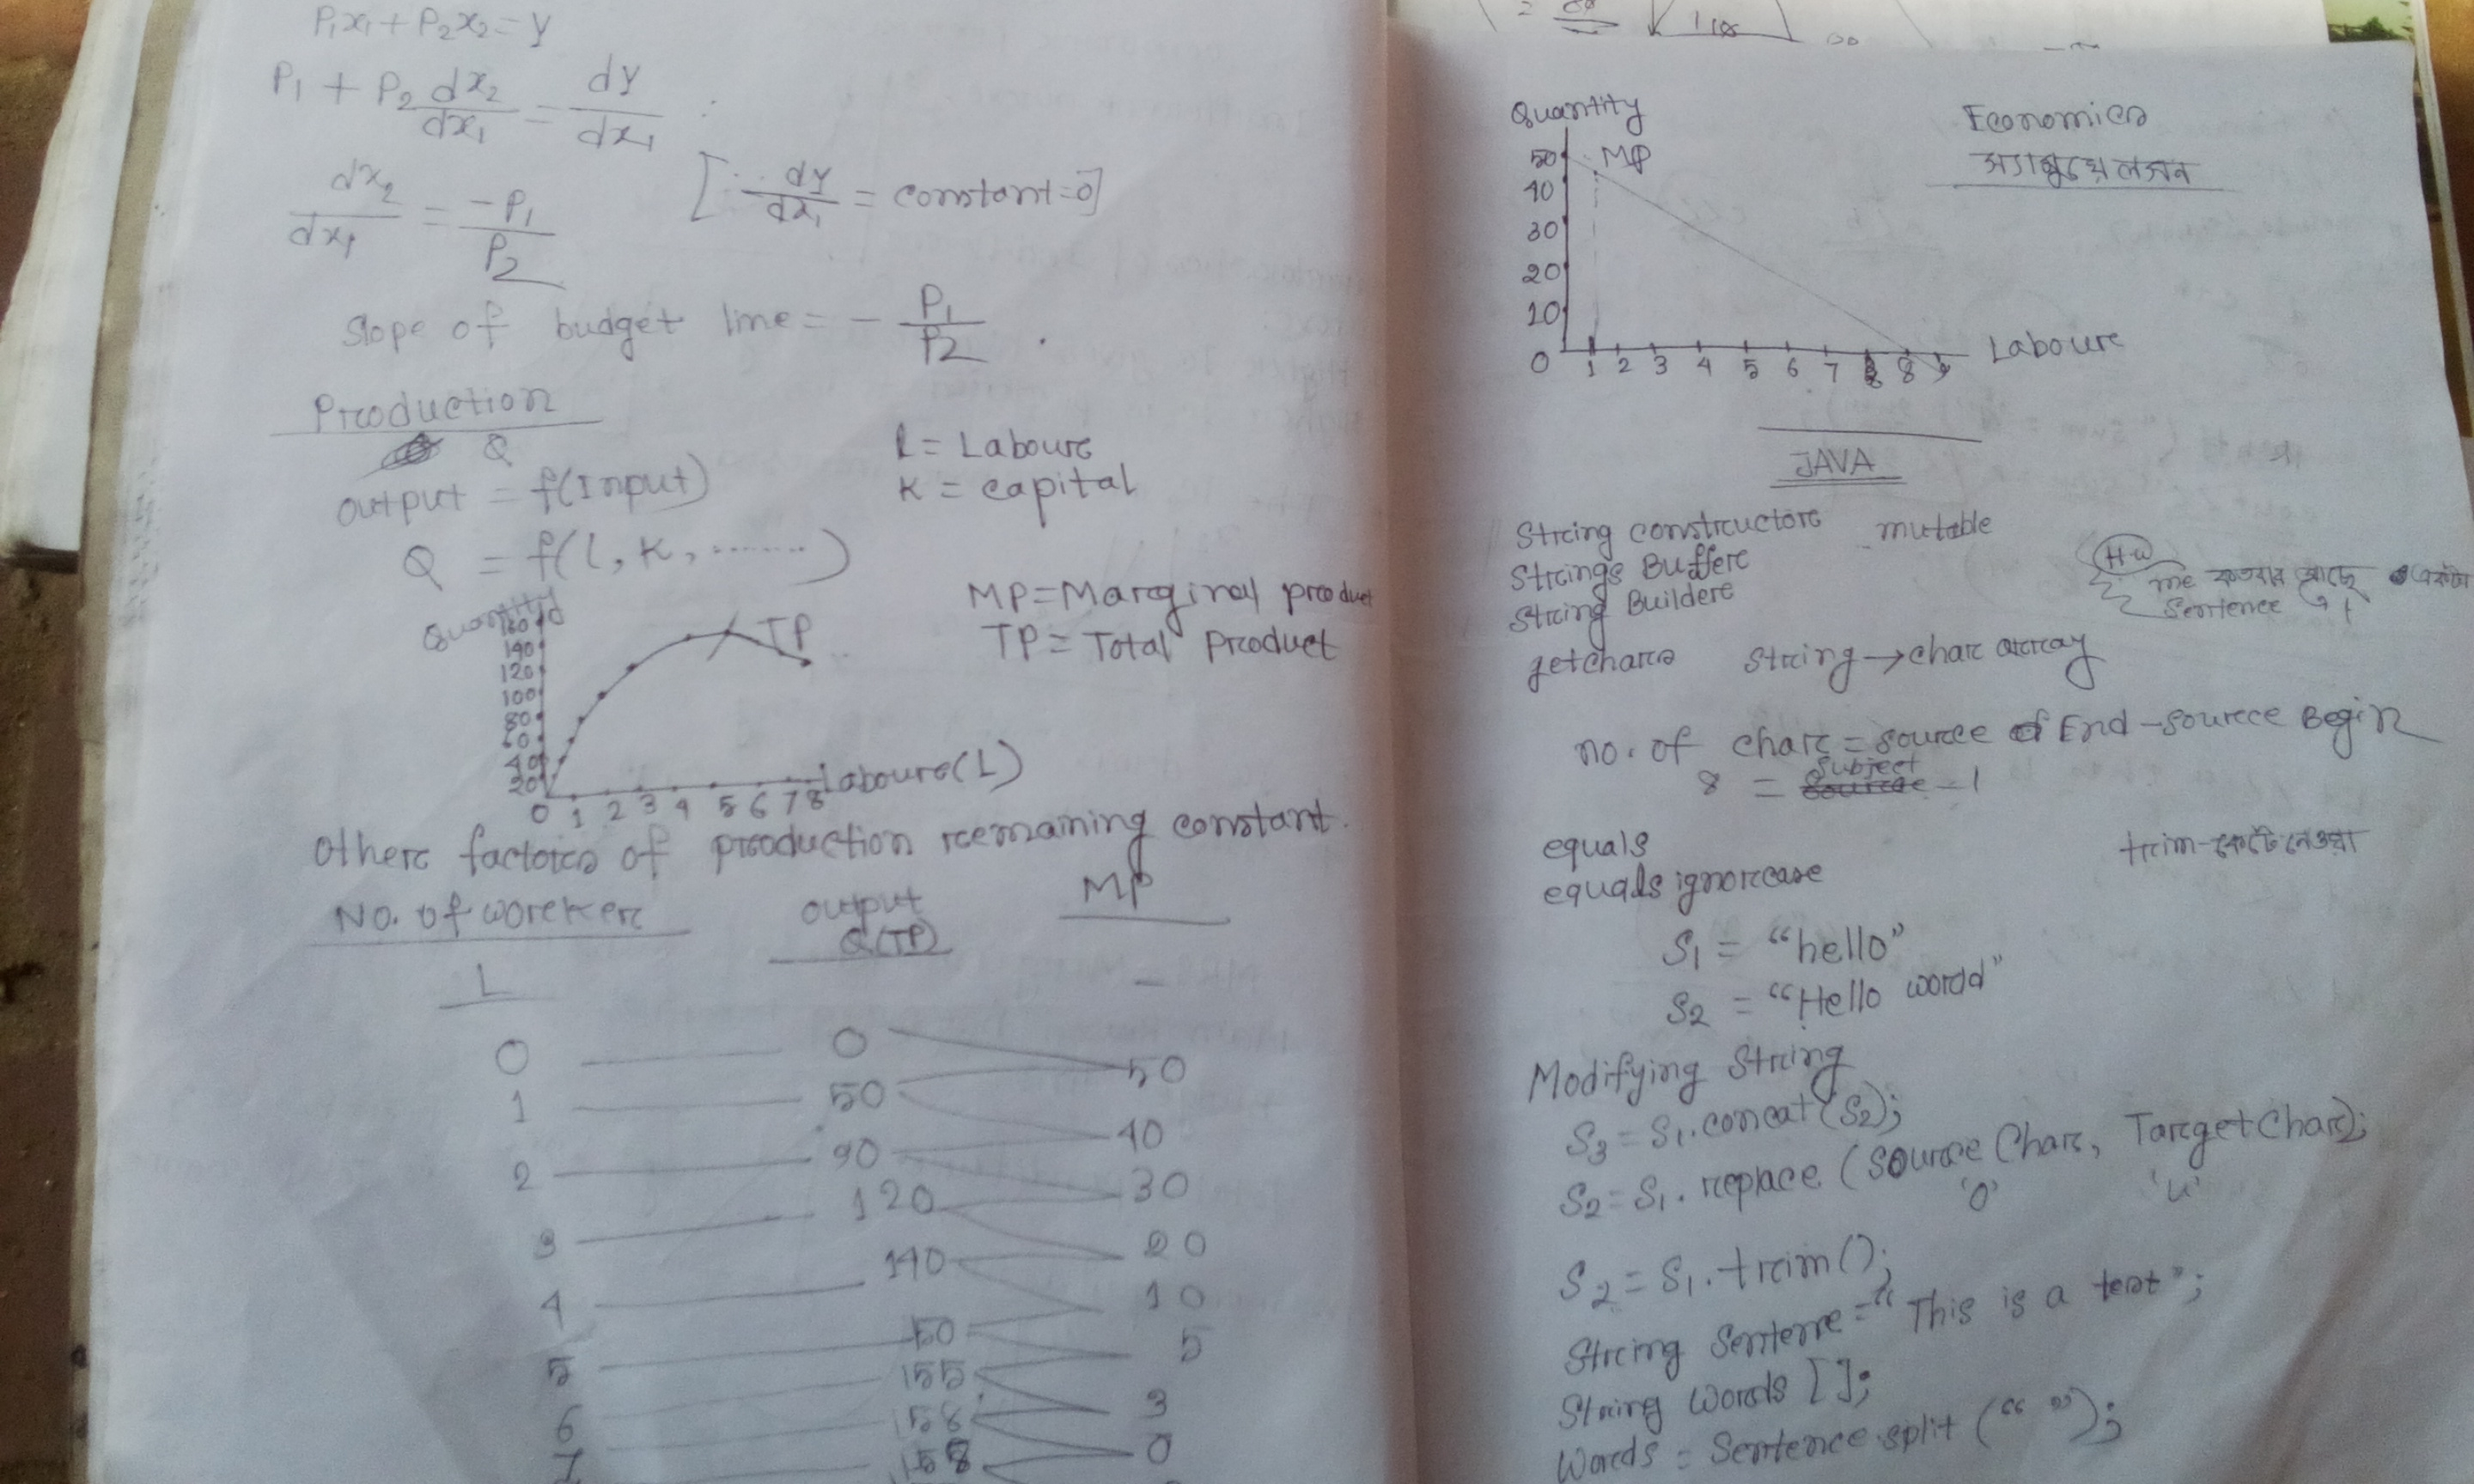 P₁x₁ + P₂x₂ = y
P₁ + P₂ dx₂/dx₁ = dy/dx₁
dx₂/dx₁ = -P₁/P₂ [∵ dy/dx₁ = constant=0]
Slope of budget line = - P₁/P₂ .
Production
Q
output = f(Input)
L = Labour
K = capital
Q = f(l, K, ........)
MP=Marginal product
TP= Total Product
Quantity
160
140
120
100
80
60
40
20
TP
0 1 2 3 4 5 6 7 8 Laboure(L)
Other factors of production remaining constant.
No. of worker output Q(TP) MP
L –
0 0
50
1 50
40
2 90
30
3 120
20
4 140
10
5 150
5
6 155
3
7 158
0
158
Quantity
50 MP
40
30
20
10
0 1 2 3 4 5 6 7 8 9 Laboure
Economics
JAVA
String constructor mutable
Strings Buffer
String Builder
H.W
sentence
getchars String → char array
no. of char = source End - source Begin
8 = Subject - 1
equals
equals ignorcase
trim - কেটে নেওয়া
S₁ = "hello"
S₂ = "Hello world"
Modifying String
S₃ = S₁.concat(S₂);
S₂ = S₁.replace (source Char, Target Char);
'o' 'u'
S₂ = S₁.trim();
String Sentence = "This is a test";
String words [];
words = Sentence.split (" ");